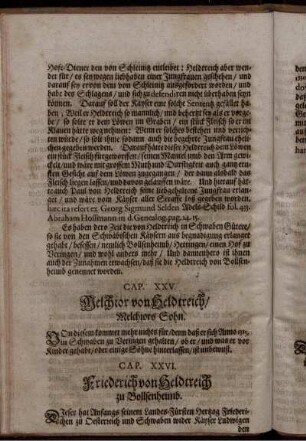 Hofe-Diener den von Schleinitz entleibet: Heldtreich aber wen-
der für / es sey wegen liebhaben einer Jungfrauen geschehen / und
darauf sey er von dem von Schleinitz außgefordert worden / und
habe des Schlagens / und sich zu defendiren nicht überhaben seyn
können. Darauf soll der Käyser eine solche Sententz gefället ha-
ben / Weil er Heldtreich so mannlich / und behertzt sey als er vorge-
be / so solte er dem Löwen im Graben / ein stück Fleisch so er im
Klauen hätte wegnehmen: Wenn er solches bestehen und verrich-
ten würde / so sole ihme sodann auch die begehrte Jungfrau ehel-
chen gegeben werden. Darauf hätte dieser Heldtreich dem Löwen
ein stück Fleisch fürgeworffen / seinen Mantel umb den Arm gewi-
ckelt / und wäre mit grossem Muth und Durstigkeit auch gantz ern-
sten Gesicht auf dem Löwen zugegangen / der dann alsbald das
Fleisch liegen lassen / und davon gelauffen wäre. Und hierauf hät-
te auch Paul von Heldtreich seine liebgehaltene Jungfrau erlan-
get / und wäre vom Käyser aller Straffe loß gegeben worden.
juxta relat. ex Georg Sigmund Selden Adels-Schild fol. 433.
Abraham Hoßmann in d. Genealog. pag. 14. 15.
Es haben dero Zeit die von Heldtreich in Schwaben Güter /
so sie von den Schwäbschen Käysern aus begnadigung erlanget
gehabt / besessen / nemlich Bollsenheimb / Hettingen / einen Hof zu
Veringen / und wohl anders mehr / Und dannenhero ist ihnen
auch der Zunahmen erwachsen / daß sie die Heldtreich von Bollsen-
heimb genennet worden.
CAP. XXV.
Melchior von Heldtreich /
Melchiors Sohn.
Von diesem kommet mehr nichts für / denn daß er sich Anno 1315.
in Schwaben zu Veringen gehalten / ob er / und was er vor
Kinder gehabt / oder einige Söhne hinterlassen / ist unbewust.
CAP. XXVI.
Friederich von Heldtreich
zu Bollsenheimb.
Dieser hat Anfangs seinem Landes-Fürsten Hertzog Friederi-
chen zu Oesterreich und Schwaben wider Käyser Ludwigen
den